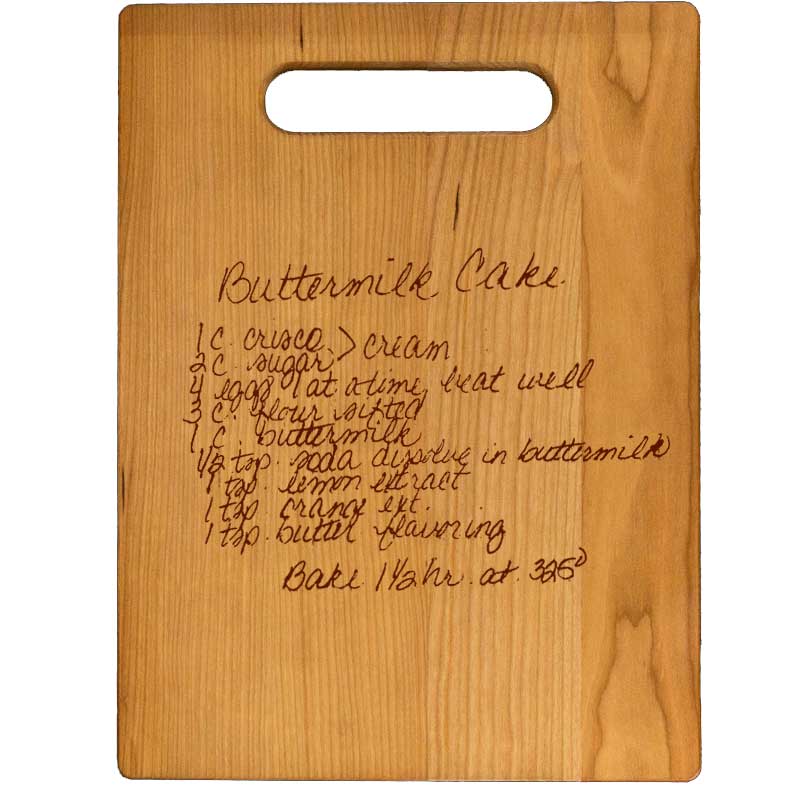 Buttermilk Cake.
1 C. crisco > cream
2 C. sugar
4 eggs 1 at a time, beat well
3 C. flour sifted
1 C. buttermilk
1/2 tsp. soda dissolve in buttermilk
1 tsp. lemon extract
1 tsp. orange ext.
1 tsp. butter flavoring
Bake 1 1/2 hr. at 325°